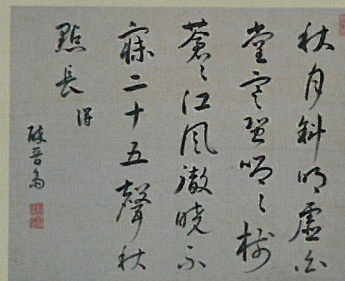 秋月斜明虛白
堂寒蛩唧〻樹
蒼〻江風徹曉不
寐二十五聲秋
點長 得